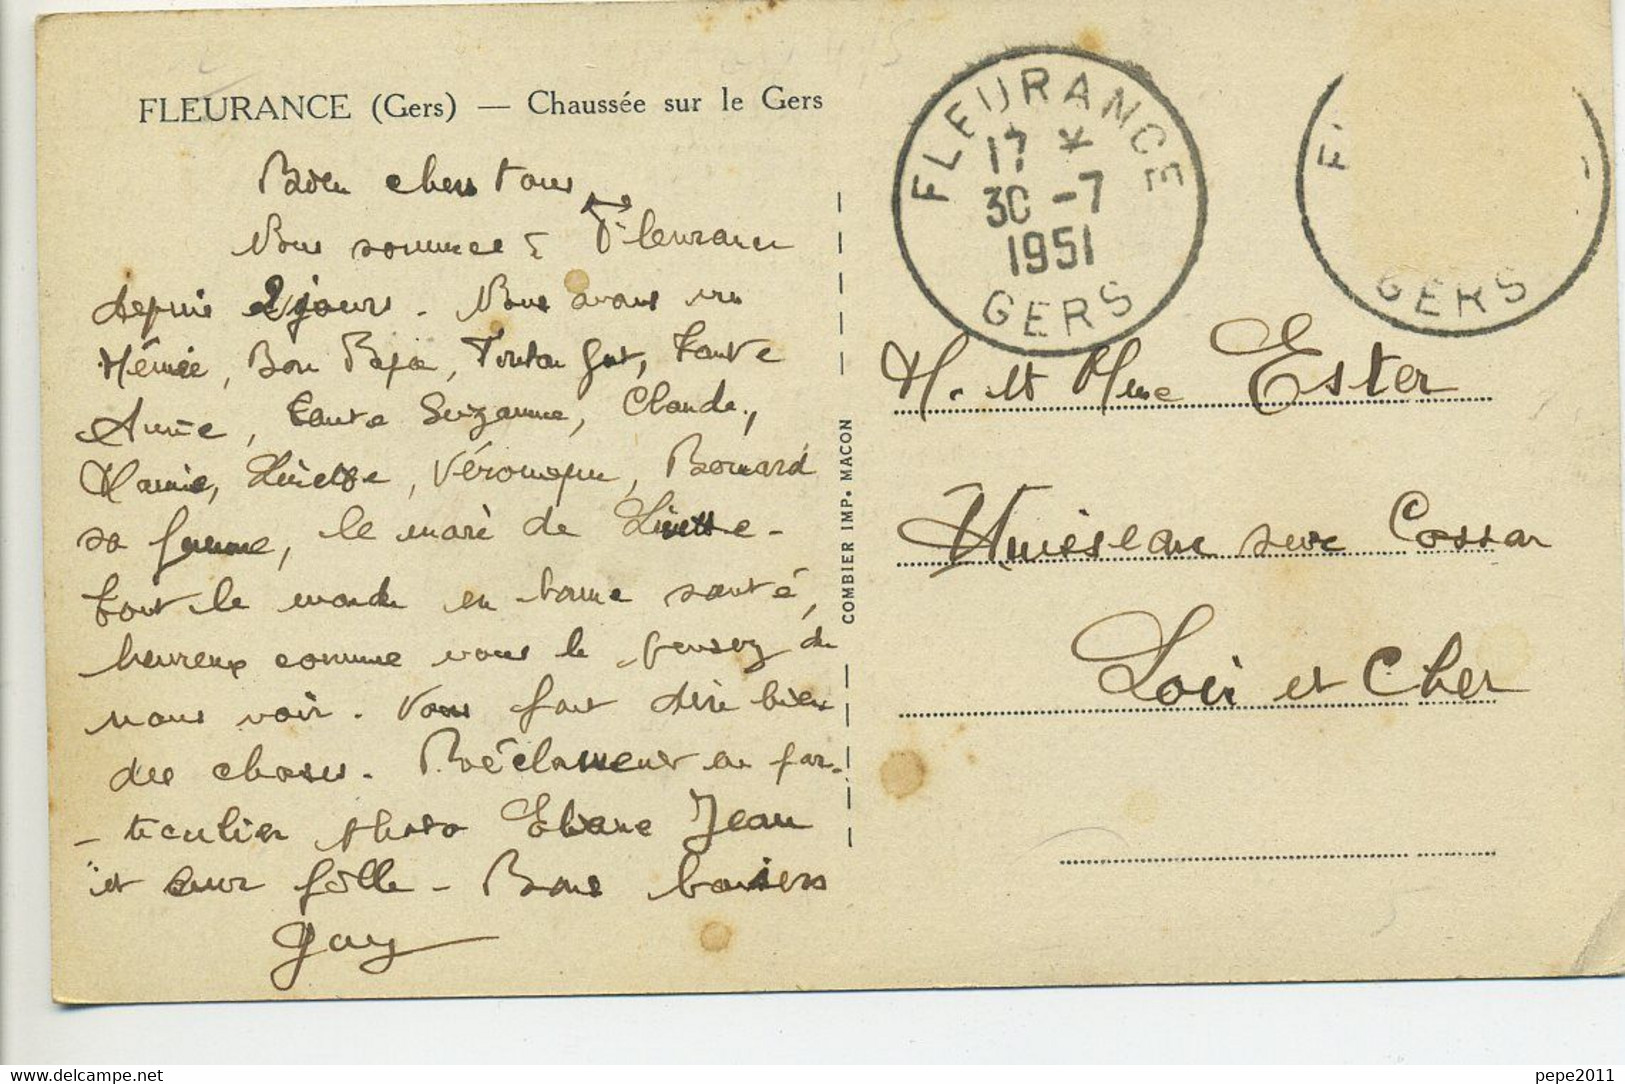 FLEURANCE (Gers) — Chaussée sur le Gers
Bien chers tous
Nous sommes à Fleurance
depuis 2 jours. Nous avons vu
Mémée, Bon Papa, Tonton Gut, tante
Annie, tante Suzanne, Claude,
Mamie, Linette, Véronique, Bernard
sa femme, le mari de Linette -
tout le monde en bonne santé,
heureux comme vous le pensez de
nous voir. Vous font dire bien
des choses. Réclament en par-
- ticulier photo Eliane Jean
et leur fille - Bons baisers
Guy
COMBIER IMP. MACON
FLEURANCE
17 *
30 -7
1951
GERS
F
GERS
M. et Mme Ester
Huisseau sur Cosson
Loir et Cher
pepe2011